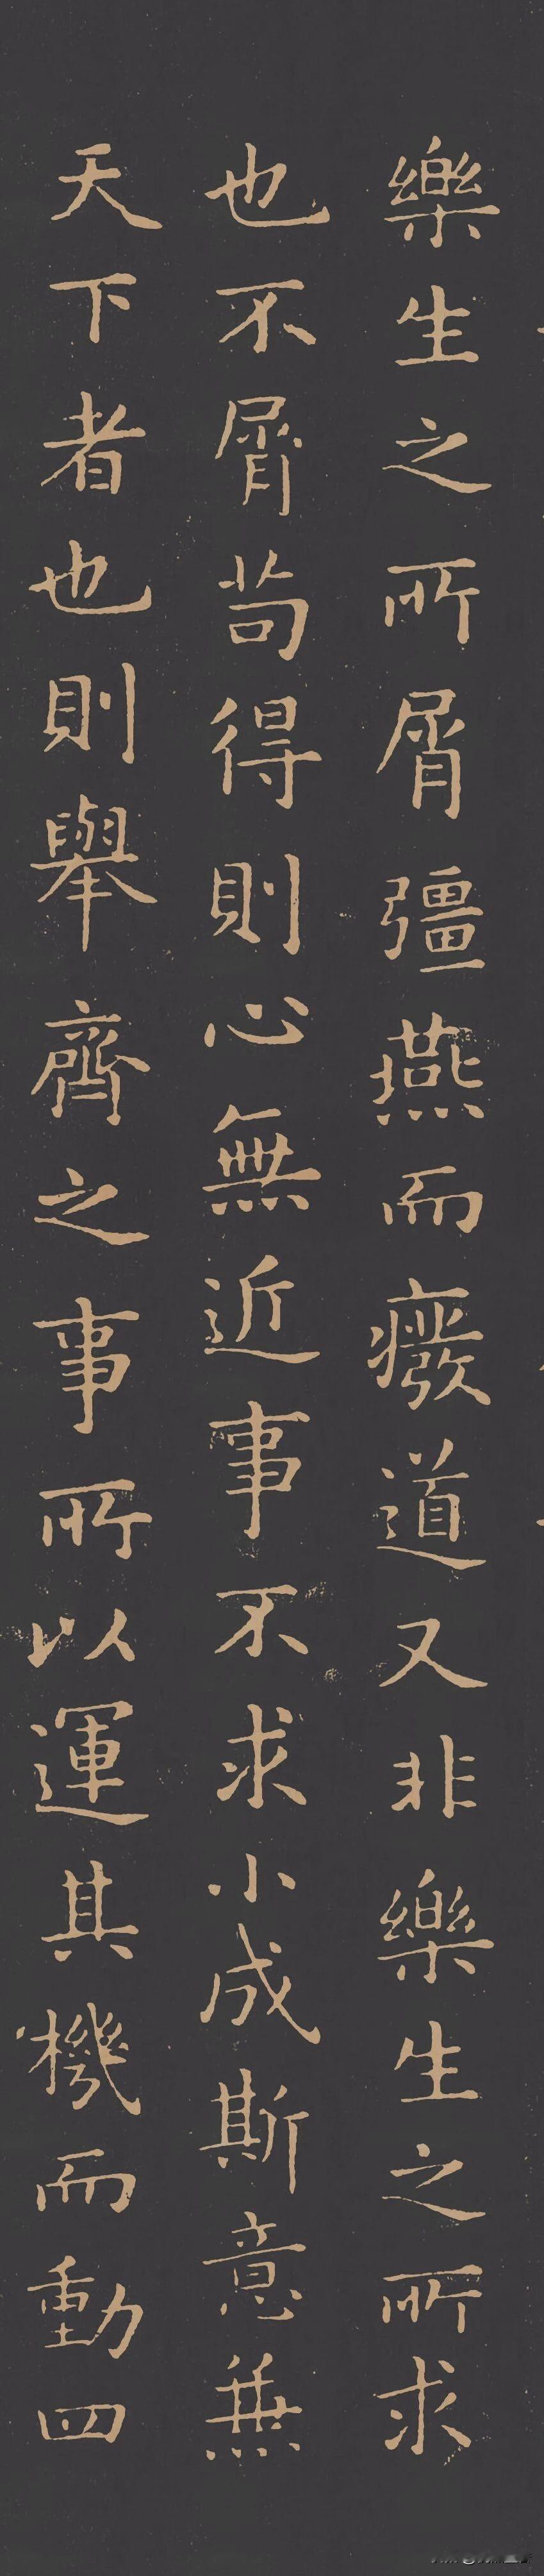 樂生之所屑彊燕而癈道又非樂生之所求
也不屑苟得則心無近事不求小成斯意兼
天下者也則舉齊之事所以運其機而動四